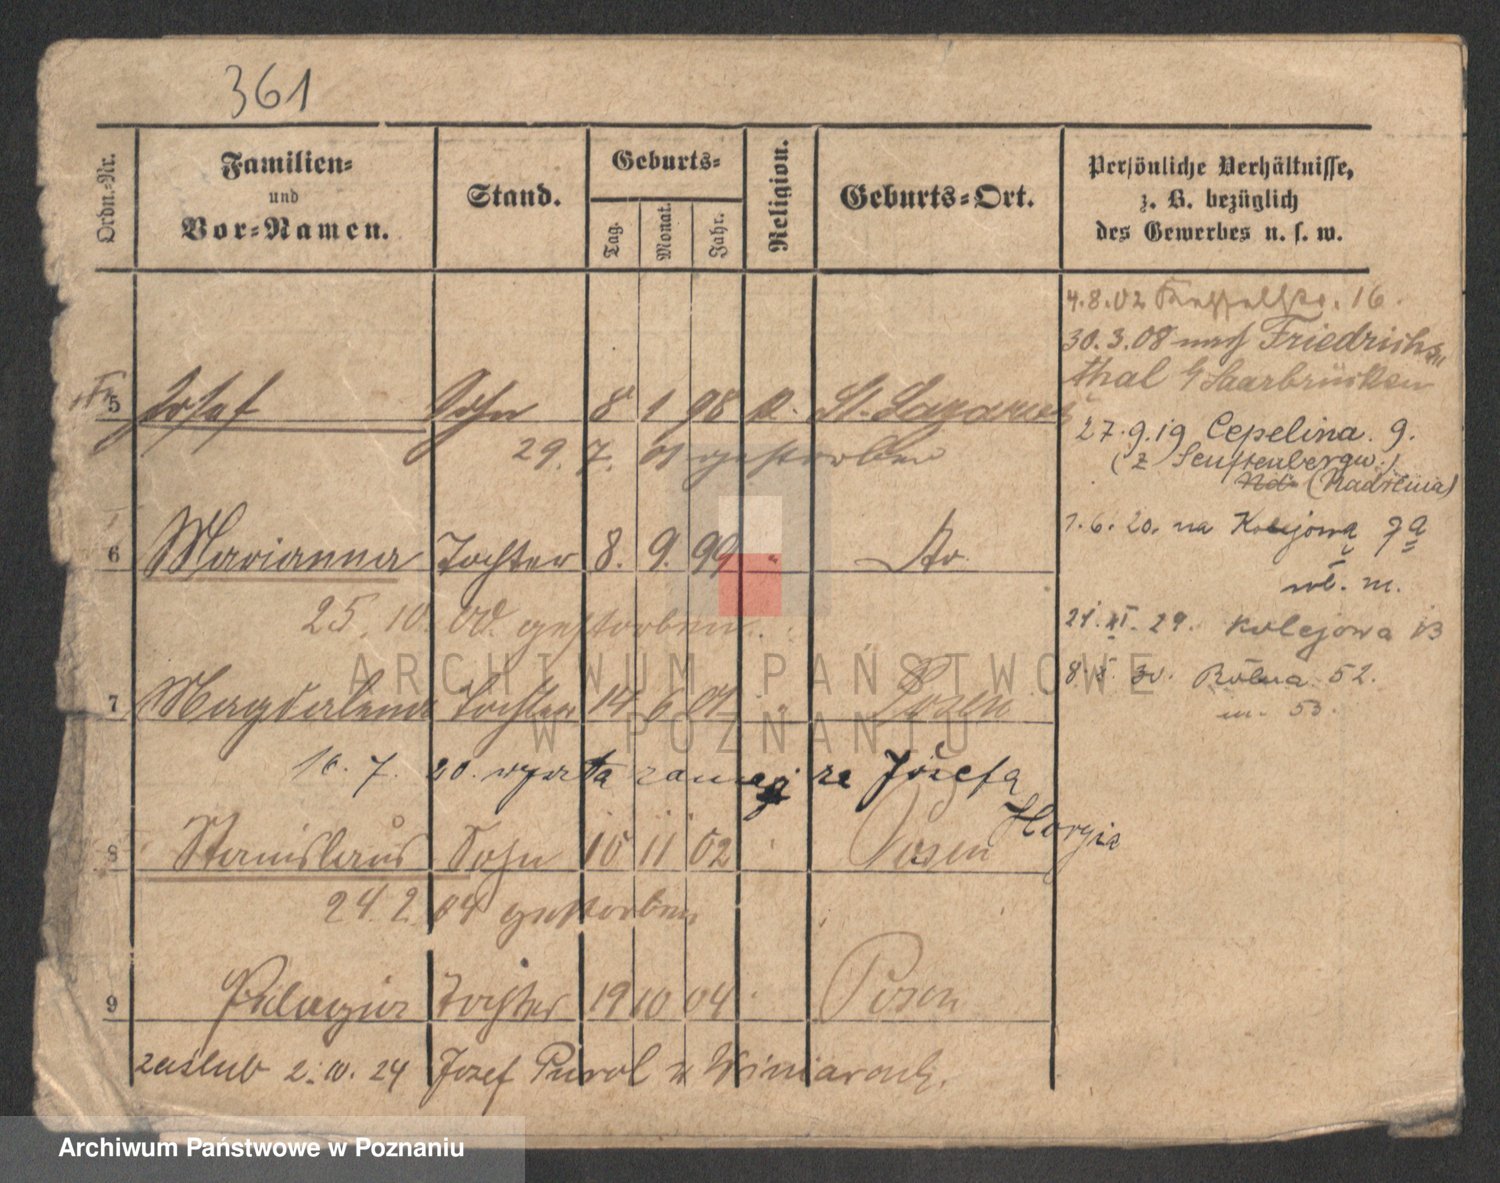 361
Ordn.-Nr.
Familien-
und
Vor-Namen.
Stand.
Geburts-
Tag.
Monat.
Jahr.
Religion.
Geburts-Ort.
Persönliche Verhältnisse,
z. B. bezüglich
des Gewerbes u. s. w.
4.8.02 16.
30.3.08 nach Friedrichs
thal b/Saarbrücken
5 Josef Sohn 8 1 98 k. St. Lazarus
27.9.19 Cepelina 9.
29. 7. 01 gestorben
(z Senftenbergu.)
(Radslina)
1.6.20. na Kolejową
6 Marianna Tochter 8. 9. 99 " do
wł. m.
25. 10. 00. gestorben.
21. XI. 29. Kolejowa
7 Magdalena Tochter 14 6 01 " Posen
8. 30. Rólna 52.
m. 53.
16. 7. 20. wyszła zamąż za Józefa
8 Stanislaus Sohn 10 11 02 Posen
24. 2. 04 gestorben
9 Pelagia Tochter 19 10 04 Posen
zaślub 2. IV. 24 Jozef z
ARCHIWUM PAŃSTWOWE
W POZNANIU
Archiwum Państwowe w Poznaniu